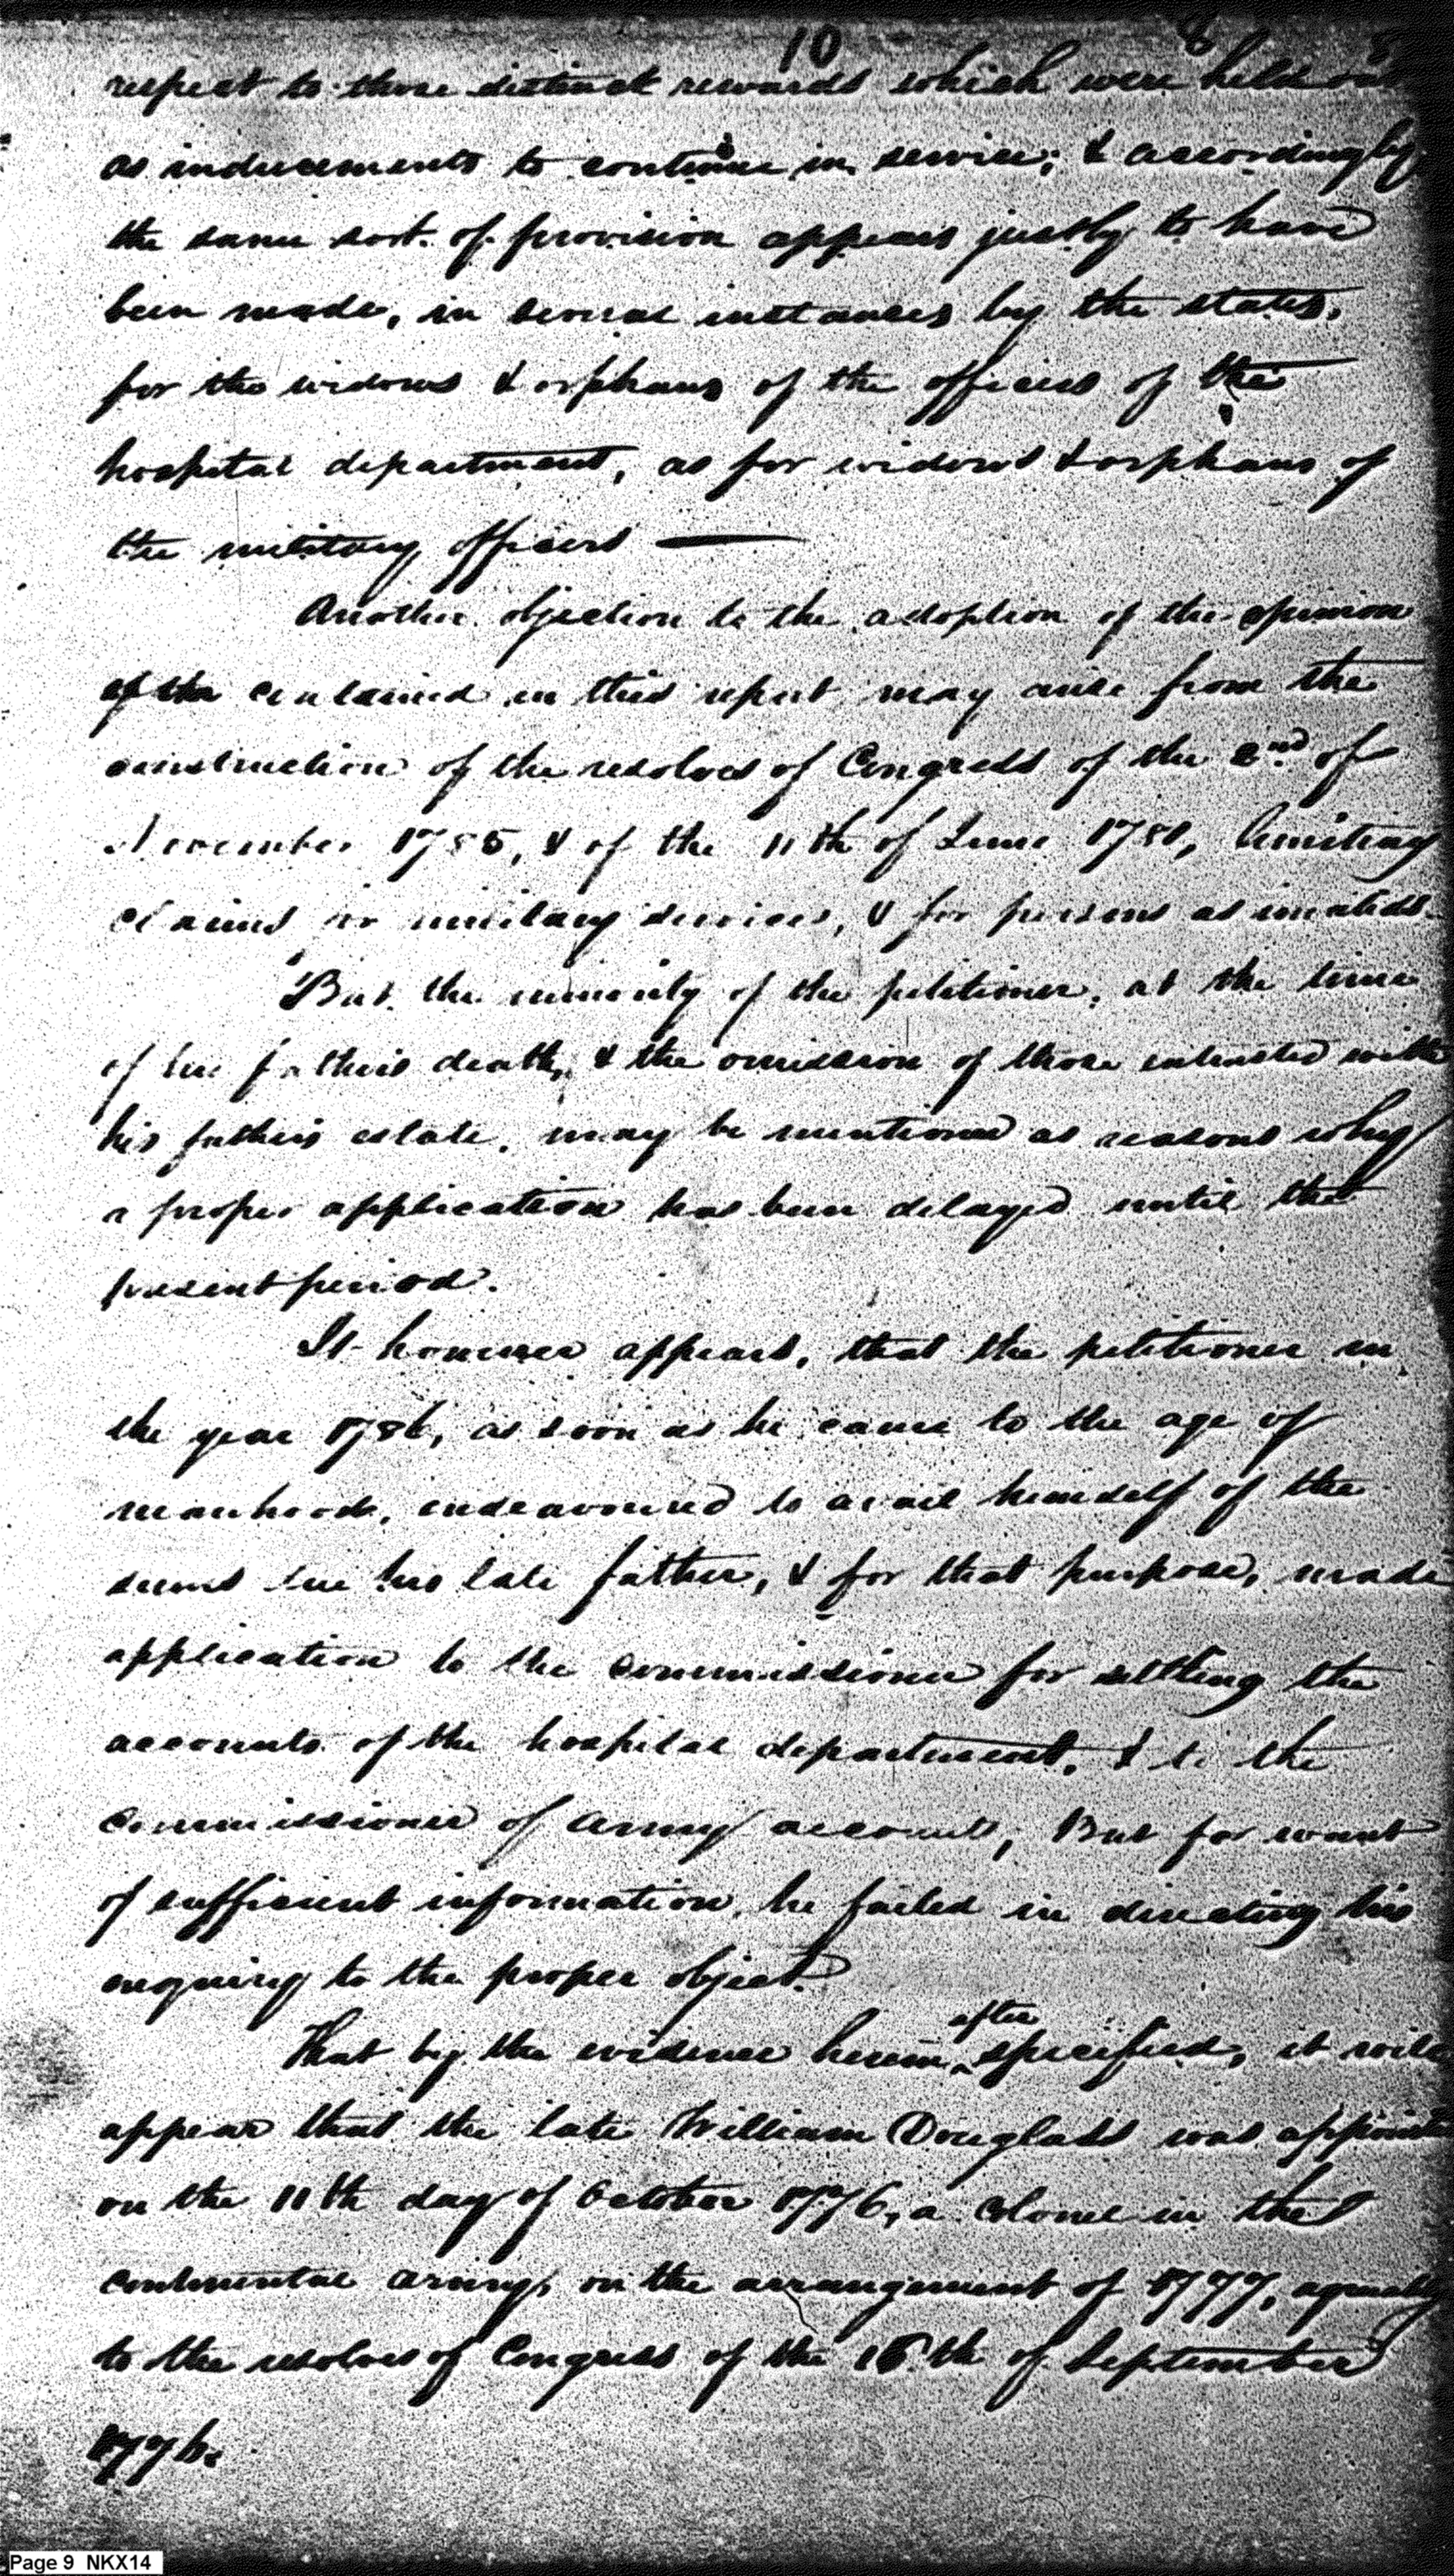 10 8 8
respect to those distinct rewards which were held out
as inducements to continue in service; & accordingly
the same sort of provision appears justly to have
been made, in several instances by the states,
for the widows & orphans of the officers of the
hospital department, as for widows & orphans of
the military officers —
Another objection to the adoption of the opinion
of the contained in this report may arise from the
construction of the resolves of Congress of the 2nd of
November 1785, & of the 11th of June 1788, limiting
claims for military services, & for persons as invalids.
But the minority of the petitioner, at the time
of his fathers death, & the omission of those intrusted with
his fathers estate, may be mentioned as reasons why
a proper application has been delayed until the
present period.
It however appears, that the petitioner in
the year 1786, as soon as he came to the age of
manhood, endeavoured to avail himself of the
sums due his late father, & for that purpose, made
application to the commissioner for settling the
accounts of the hospital department, & to the
commissioner of army accounts, But for want
of sufficient information, he failed in directing his
enquiry to the proper object.
That by the evidence herein after specified, it will
appear that the late William Douglass was appointed
on the 11th day of October 1776, a colonel in the
continental army, on the arrangement of 1777, agreeably
to the resolves of Congress of the 16th of September
1776.
Page 9 NKX14